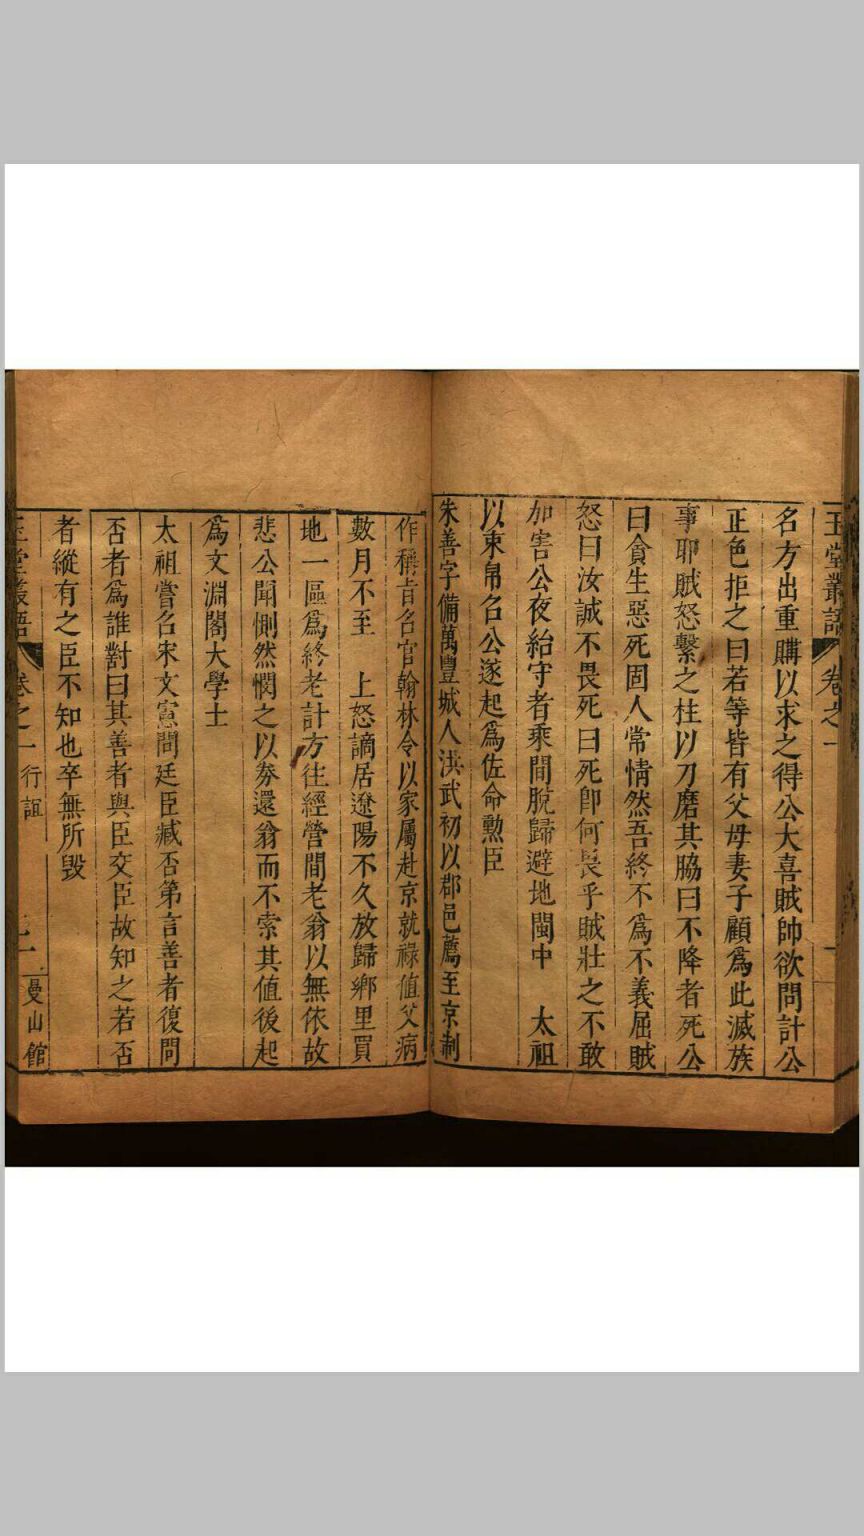 玉堂叢語 卷之一
名方出重購以求之得公大喜賊帥欲問計公
正色拒之曰若等皆有父母妻子顧爲此滅族
事耶賊怒繫之柱以刀磨其脇曰不降者死公
曰貪生惡死固人常情然吾終不爲不義屈賊
怒曰汝誠不畏死曰死卽何長乎賊壯之不敢
加害公夜紿守者乘間脫歸避地閩中 太祖
以束帛名公遂起爲佐命勲臣
朱善字備萬豐城人洪武初以郡邑薦至京制
作稱旨名官翰林令以家屬赴京就祿值父病
數月不至 上怒謫居遼陽不久放歸鄉里買
地一區爲終老計方徃經營間老翁以無依故
悲公聞惻然憫之以劵還翁而不索其值後起
爲文淵閣大學士
太祖嘗名宋文憲問廷臣臧否第言善者復問
否者爲誰對曰其善者與臣交臣故知之若否
者縱有之臣不知也卒無所毀
玉堂叢語 卷之一 行誼 曼山館